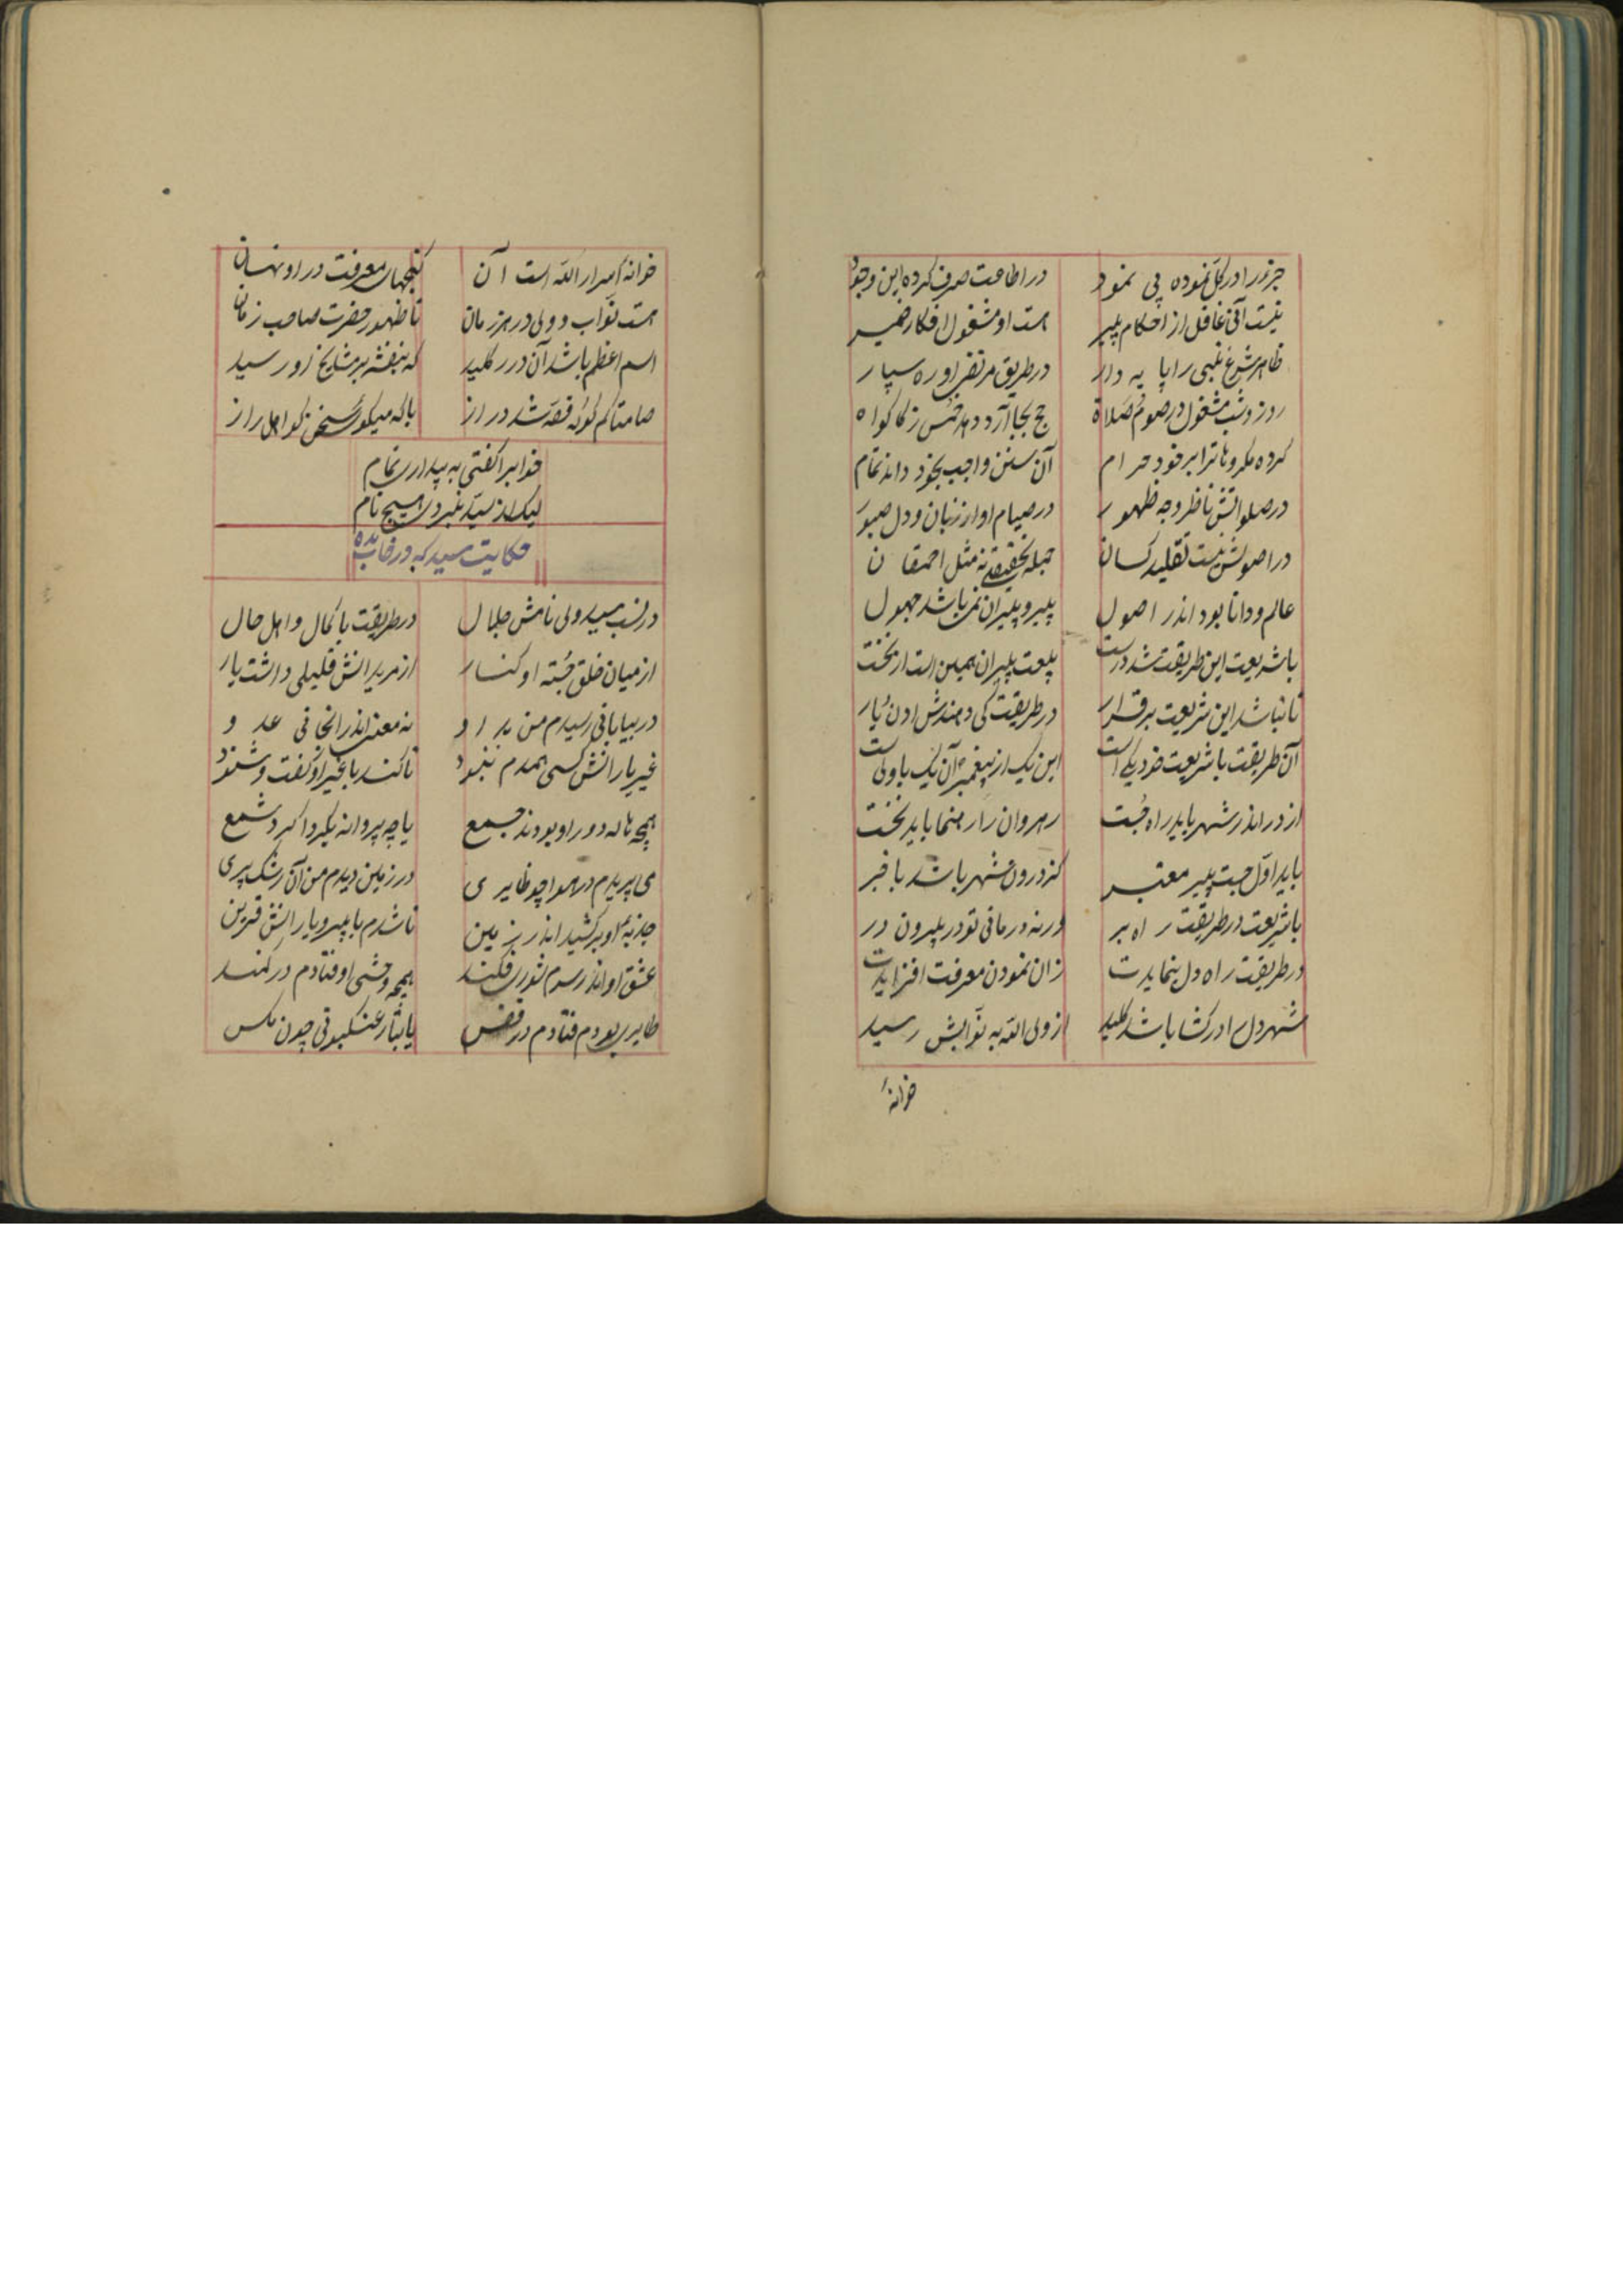 جزء را در کل نموده پی نمود در اطاعت صرف کرده این وجود
نیست آنی غافل از احکام پیر هست او مشغول افکار ضمیر
ظاهر شرع نبی را پا یه دار در طریق مرتضی او ره سپار
روز و شب مشغول در صوم و صلاة حج بجا آرد دهد خمس زکاة
کرده مکروهات را بر خود حرام آن سنن واجب بخود داند تمام
در صلواتش ناظر وجه ظهور در صیام او از زبان و دل صبور
در اصولش نیست تقلید کسان جمله تحقیقی نه مثل احمقان
عالم و دانا بود اندر اصول پیر و پیران نمی باشد جهول
با شریعت این طریقت شد درست بیعت پیران همین است از نخست
تا نباشد این شریعت برقرار در طریقت کی دهندش اذن یار
آن طریقت با شریعت خود یکی است این یک از پیغمبر آن یک با ولی است
از در اندر شهر باید راه جست رهروان را رهنما باید نخست
باید اول جست پیر معتبر کز درون شهر باشد با خبر
با شریعت در طریقت راه بر ورنه درمانی تو در بیرون در
در طریقت راه دل بنمایدت زان نمودن معرفت افزایدت
شهر دل را در گشا باشد کلید از ولی الله به نوابش رسید
خزانهٔ
خزانهٔ اسرار الله است آن گنجهای معرفت در او نهان
هست نواب و ولی در هر زمان تا ظهور حضرت صاحب زمان
اسم اعظم باشد آن در را کلید که بنقشه بر مشایخ زو رسید
صامتا کم گو که قصه شد دراز با که میگوئی سخن کو اهل راز
خواب را گفتی به بیداری تمام
لیک از سید نبردی هیچ نام
حکایت سید که در خواب دیده
در نسب سید ولی نامش جلال در طریقت با کمال و اهل حال
از میان خلق جسته او کنار از مریدانش قلیلی داشت یار
در بیابانی رسیدم من بدو نه معین اندر انجا نی عدو
غیر یارانش کسی همدم نبود تا کند با غیر او گفت و شنود
همچو هاله دور او بودند جمع یا چو پروانه بگرداگرد شمع
می پریدم در هوا چو طایری در زمین دیدم من آن رشک پری
جذبهٔ او بر کشید اندر زمین تا شدم با پیر و یارانش قرین
عشق او اندر سرم شوری فکند همچو وحشی اوفتادم در کمند
طایری بودم فتادم در قفس یا بتار عنکبوتی چون مگس